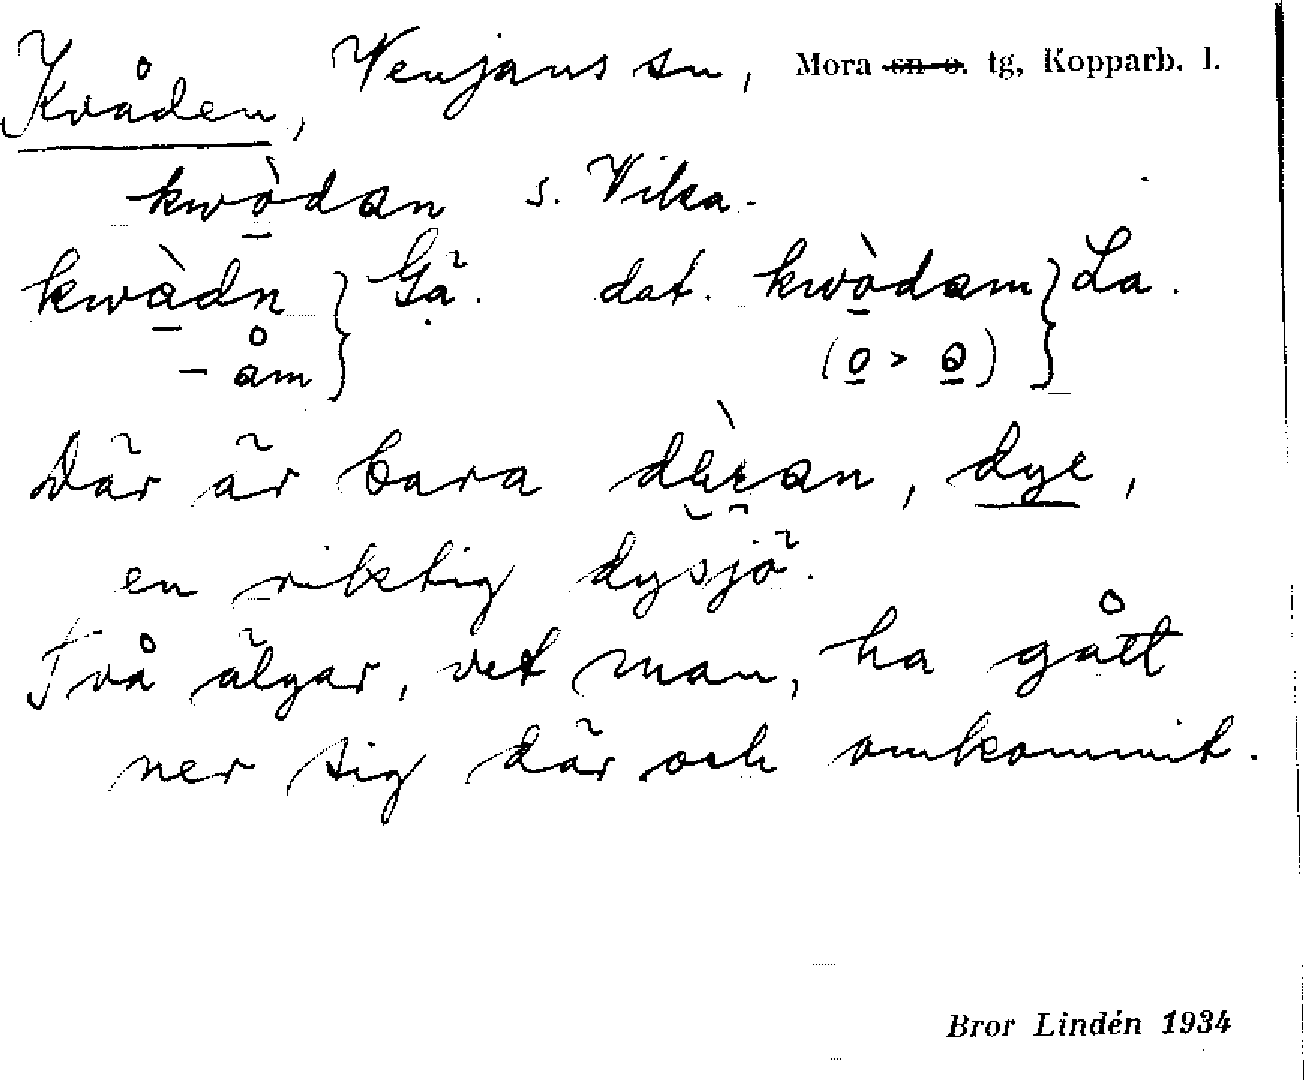 Kvåden, Venjans sn, Mora sn o. tg, Kopparb. l.
kwòdan s. Vika.
kwàdn } Gä. dat. kwòdam } La.
- åm (o > a)
Där är bara , dye,
en riktig dysjö.
Två älgar, vet man, ha gått
ner sig där och omkommit.
Bror Lindén 1934